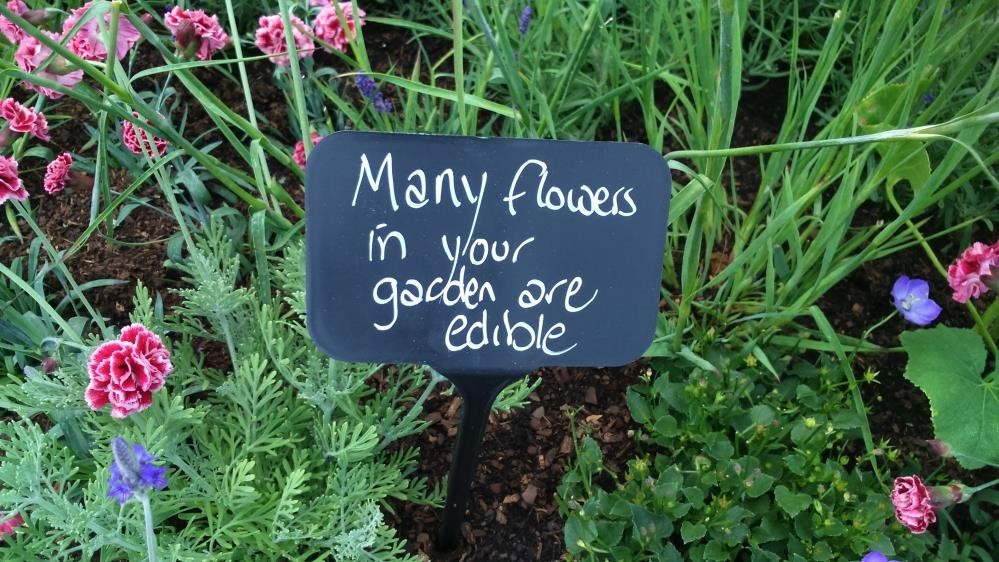 Many flowers
in your
garden are
edible